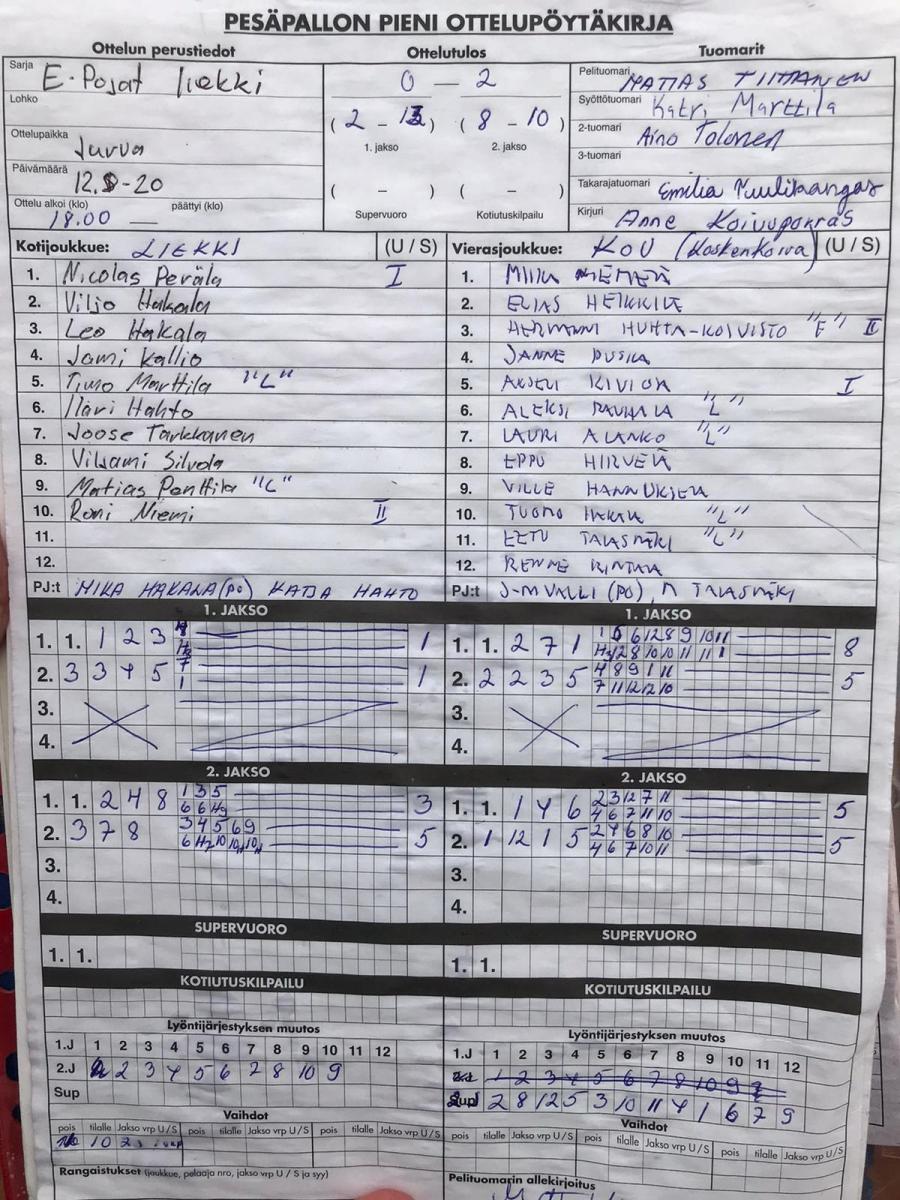 PESÄPALLON PIENI OTTELUPÖYTÄKIRJA
Ottelun perustiedot
Sarja E-Pojat liekki
Lohko
Ottelupaikka Jurva
Päivämäärä 12.8-20
Ottelu alkoi (klo) 18.00 päättyi (klo)
Ottelutulos
0 – 2
(2 – 13) (8 – 10)
1. jakso 2. jakso
( – ) ( – )
Supervuoro Kotiutuskilpailu
Tuomarit
Pelituomari MATIAS TIITTANEN
Syöttötuomari Katri Marttila
2-tuomari Aino Tolonen
3-tuomari
Takarajatuomari Emilia Tuulikangas
Kirjuri Anne
Kotijoukkue: LIEKKI (U / S)
1. Nicolas Perälä I
2. Viljo Hakala
3. Leo Hakala
4. Jami Kallio
5. Timo Marttila "L"
6. Ilari Hahto
7. Joose Tarkkanen
8. Viljami Silvola
9. Matias Penttilä "L"
10. Roni Niemi II
11.
12.
PJ:t MIKA HAKALA (PO) KATJA HAHTO
Vierasjoukkue: KOU (Koskenkorva) (U / S)
1. MIIKA
2. ELIAS HEIKKILÄ
3. HERMANNI HUHTA-KOIVISTO "E" II
4. JANNE
5. AKSELI I
6. ALEKSI RAUHALA "L"
7. LAURI ALANKO "L"
8. EPPU HIRVELÄ
9. VILLE HANNUKSELA
10. TUOMO "L"
11. EETU TALASMÄKI "L"
12. RINTALA
PJ:t J-M VALLI (PO), TALASMÄKI
1. JAKSO
1. 1. 1 2 3 1
2. 3 3 4 5 7 1 1
3.
4.
1. JAKSO
1. 1. 2 7 1 8
2. 2 2 3 5 4 8 9 1 11 5
7 11 12 12 10
3.
4.
2. JAKSO
1. 1. 2 4 8 1 3 5 3
2. 3 7 8 3 4 5 6 9 5
3.
4.
2. JAKSO
1. 1. 1 4 6 2 3 12 7 11 5
4 6 7 11 10
2. 1 12 1 5 2 4 6 8 10 5
4 6 7 10 11
3.
4.
SUPERVUORO
1. 1.
SUPERVUORO
1. 1.
KOTIUTUSKILPAILU
KOTIUTUSKILPAILU
Lyöntijärjestyksen muutos
1.J 1 2 3 4 5 6 7 8 9 10 11 12
2.J 2 3 4 5 6 7 8 10 9
Sup
Vaihdot
pois tilalle Jakso vrp U / S pois tilalle Jakso vrp U/S pois tilalle Jakso vrp U/S
10
Rangaistukset (joukkue, pelaaja nro, jakso vrp U / S ja syy)
Lyöntijärjestyksen muutos
1.J 1 2 3 4 5 6 7 8 9 10 11 12
1 2 3 4 5 6 7 8 10 9
2 8 12 5 3 10 11 4 1 6 7 9
Vaihdot
pois tilalle Jakso vrp U / S pois tilalle Jakso vrp U/S pois tilalle Jakso vrp U/S
Pelituomarin allekirjoitus